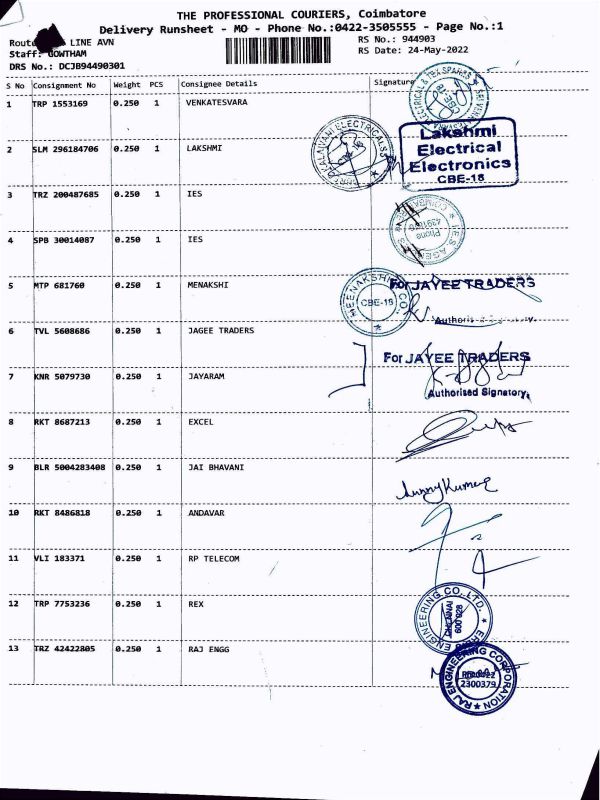 THE PROFESSIONAL COURIERS, Coimbatore
Delivery Runsheet - MO - Phone No.:0422-3505555 - Page No.:1
LINE AVN
RS No.: 944903
Staff: GOWTHAM
RS Date: 24-May-2022
DRS No.: DCJB94490301
S No Consignment No Weight PCS Consignee Details Signature
1 TRP 1553169 0.250 1 VENKATESVARA
2 SLM 296184706 0.250 1 LAKSHMI
Lakshmi
Electrical
Electronics
CBE-18
3 TRZ 200487685 0.250 1 IES
4 SPB 30014087 0.250 1 IES
Phone
5 MTP 681760 0.250 1 MENAKSHI
MEENAKSHI CO.
CBE-18
For JAYEE TRADERS
6 TVL 5608686 0.250 1 JAGEE TRADERS
For JAYEE TRADERS
7 KNR 5079730 0.250 1 JAYARAM
Authorised Signatory
8 RKT 8687213 0.250 1 EXCEL
9 BLR 5004283408 0.250 1 JAI BHAVANI
10 RKT 8486818 0.250 1 ANDAVAR
11 VLI 183371 0.250 1 RP TELECOM
12 TRP 7753236 0.250 1 REX
ENGINEERING CO. LTD.
CHENNAI
600 028
13 TRZ 42422805 0.250 1 RAJ ENGG
RAJ ENGINEERING CORPORATION
2300379